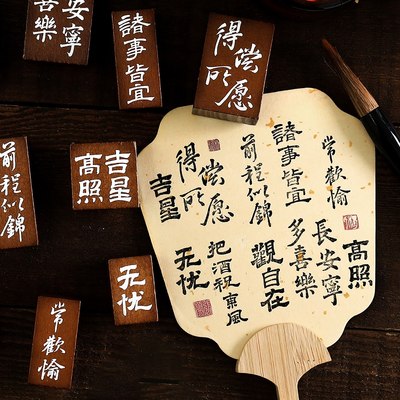 喜樂
安寧
諸事皆宜
得償
所愿
前程似錦
吉星
高照
无忧
常歡愉
諸事皆宜
常歡愉
前程似錦
得償
所愿
吉星
高照
長安寧
多喜樂
觀自在
把酒祝東風
无忧